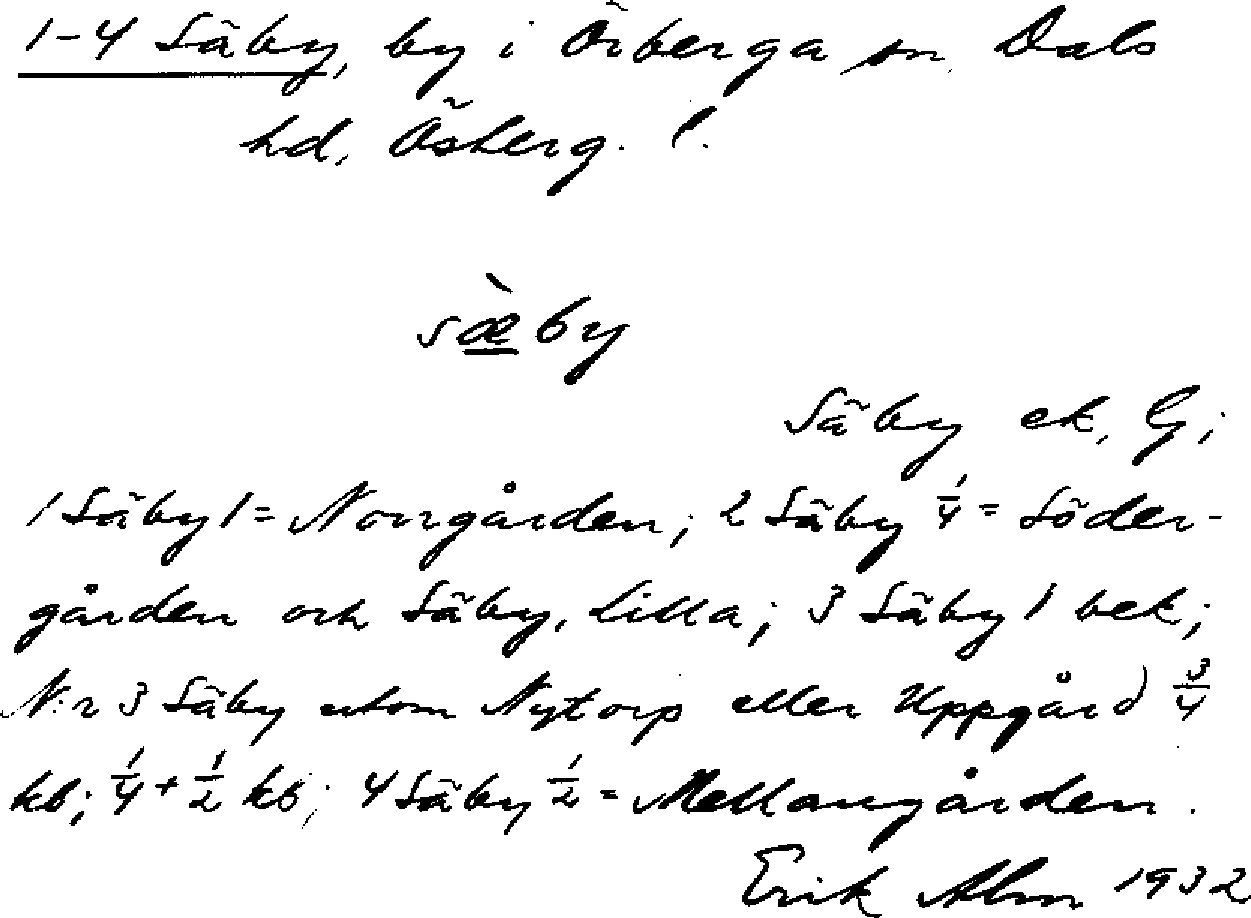 1-4 Säby, by i Örberga sn. Dals
hd, Österg. l.
sæ̀by
Säby ek. G;
1 Säby 1 = Norrgården; 2 Säby 1/4 = Söder-
gården och Säby, Lilla; 3 Säby 1 bek;
N:r 3 Säby utom Nytorp eller Uppgård) 3/4
kb; 1/4 + 1/2 kb; 4 Säby 1/2 = Mellangården.
Erik Alm 1932